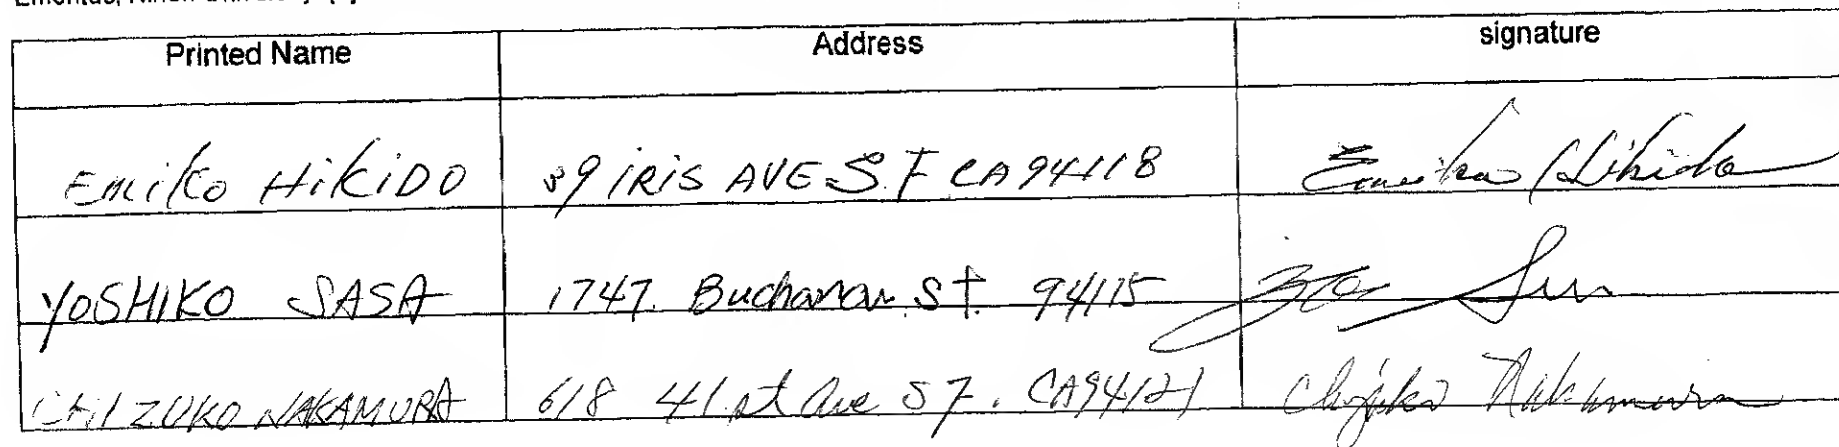 Printed Name Address signature
Emiko HIKIDO 39 IRIS AVE S.F CA 94118 Emiko Hikido
YOSHIKO SASA 1747. Buchanan St. 94115
CHIZUKO NAKAMURA 618 41st Ave SF. CA 94121 Chizuko Nakamura